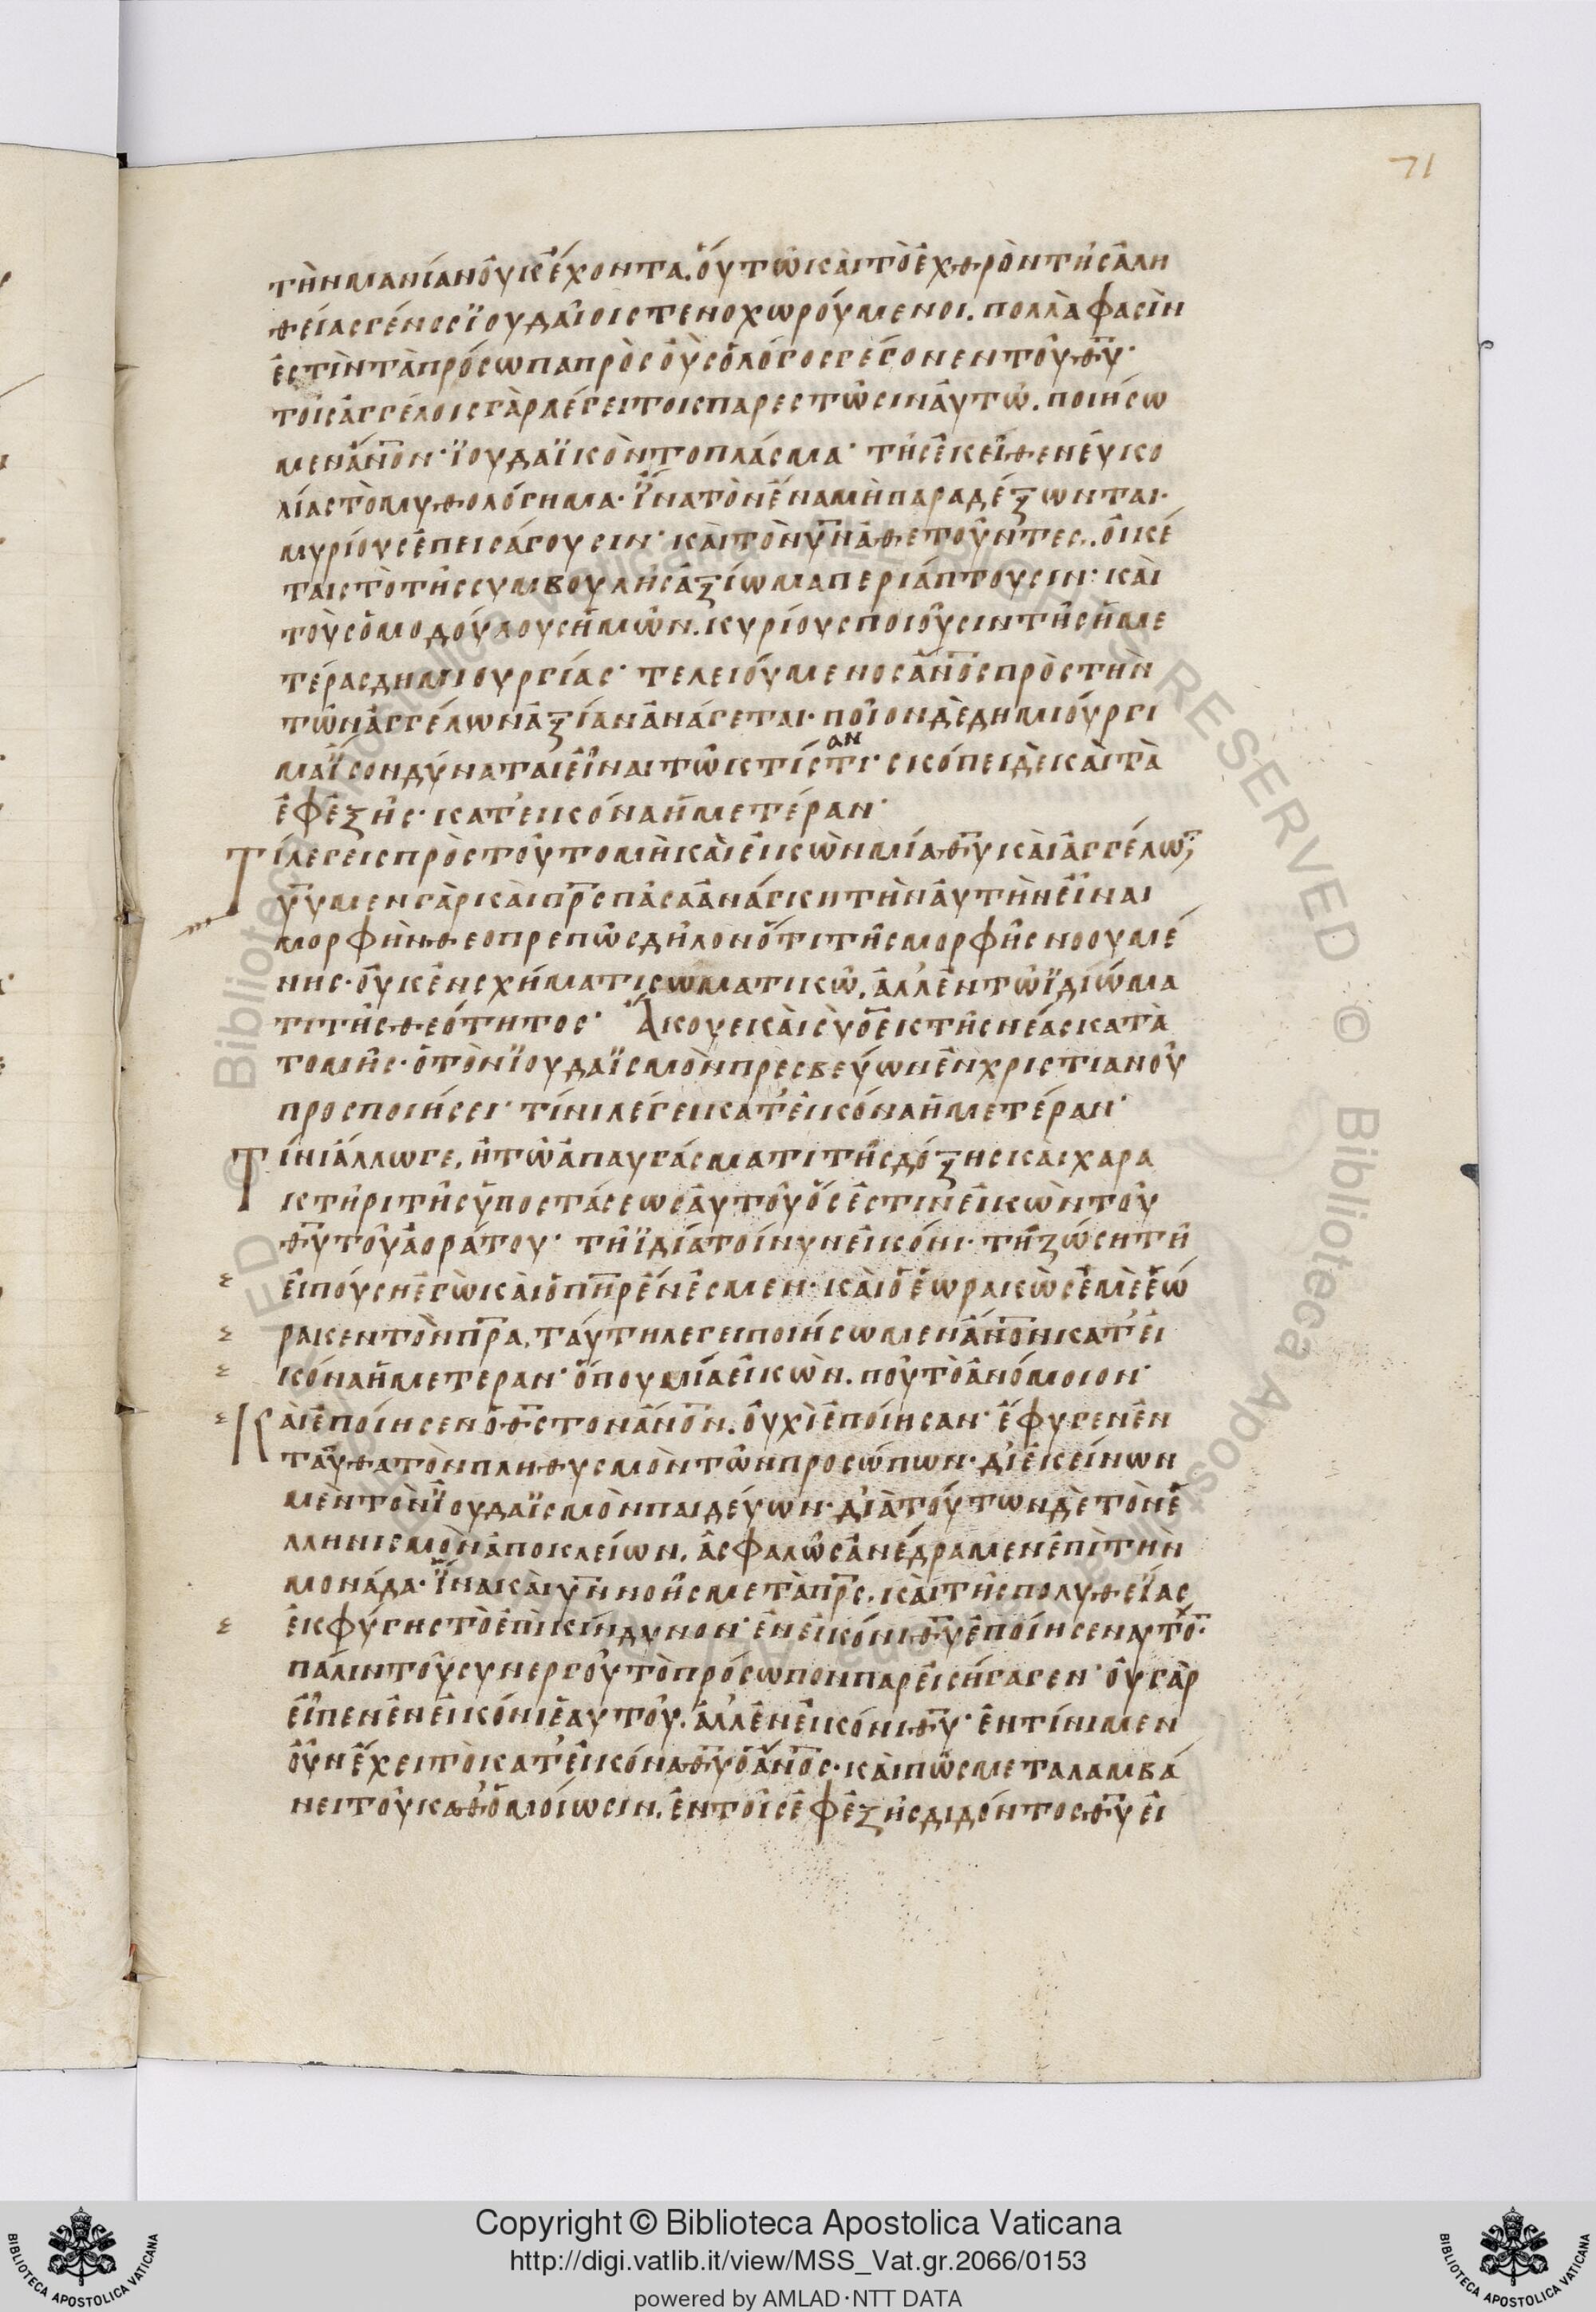 71
τὴν μανίαν οὐκ ἔχοντα. οὕτω καὶ τὸ ἐχθρὸν τῆς ἀλη
θείας γένος ἰουδαῖοι στενοχωρούμενοι. πολλὰ φασὶν
ἐστὶν τὰ πρόσωπα πρὸς οὓς ὁ λόγος γέγονεν τοῦ θ̅υ̅·
τοῖς ἀγγέλοις γὰρ λέγει τοις παρεστῶσιν αὐτῶ. ποιήσω
μεν ἄν̅ο̅ν̅· ἰουδαϊκὸν το πλάσμα· τῆς ἐκεῖθεν εὐκο
λίας τὸ μυθολόγημα· ἵνα τὸν ἕνα μὴ παραδέξωνται·
μυρίους ἐπεισάγουσιν· καὶ τὸν υ̅ν̅ ἀθετοῦντες. οἰκέ
ταις τὸ τῆς συμβουλῆς ἀξίωμα περιάπτουσιν· καὶ
τοὺς ὁμοδούλους ἡμῶν. κυρίους ποιοῦσιν τῆς ἡμε
τέρας δημιουργίας· τελειούμενος ἄν̅ο̅ς̅ πρὸς τὴν
τῶν ἀγγέλων ἀξίαν ἀνάγεται· ποῖον δὲ δημιούργι
μα ἴσον δύναται εἶναι τῶ κτίσ
αν
τι· σκόπει δὲ καὶ τὰ
ἐφεξῆς· κατ' εικόνα ἡμετέραν·
Τί λεγεις πρὸς τοῦτο μὴ καὶ εἰκὼν μία θ̅υ̅ καὶ ἀγγέλω̅;
υ̅υ̅ μεν γὰρ καὶ π̅ρ̅ς̅ πᾶσα ἀνάγκη τὴν αὐτὴν εἶναι
μορφὴν. θεοπρεπῶς δηλονότι τῆς μορφῆς νοουμέ
νης· οὐκ ἐν σχήματι σωματικῶ. ἀλλ' ἐν τῶ ἰδιώμα
τι τῆς θεότητος· Ἄκουε καὶ σὺ ὁ ἐκ τῆς νέας κατὰ
τομῆς· ὁ τὸν ἰουδαϊσμὸν πρεσβεύων ἐν χριστιανοῦ
προσποιήσει· τίνι λέγει κατ' εἰκόνα ἡμετέραν·
Τίνι ἄλλω γε. ἢ τῶ ἀπαυγάσματι τῆς δόξης καὶ χαρα
κτῆρι τῆς ὑποστάσεως αὐτοῦ ὅς ἐστιν εἰκὼν τοῦ
θ̅υ̅ τοῦ ἀοράτου· τῆ ἰδία τοίνυν εἰκόνι· τῆ ζώση τῆ
εἰπούση ἐγὼ καὶ ὁ π̅η̅ρ̅ ἕν ἐσμεν· καὶ ὁ ἑωρακὼς ἐμὲ ἑώ
ρακεν τὸν π̅ρ̅α̅. ταύτη λεγει ποιήσωμεν ἄν̅ο̅ν̅ κατ' εἰ
κόνα ἡμετεραν· ὅπου μία εἰκὼν. ποῦ τὸ ἀνόμοιον·
Καὶ ἐποίησεν ὁ θ̅ς̅ τον ἄν̅ο̅ν̅. οὐχὶ ἐποίησαν· ἔφυγεν ἐν
ταῦθα τὸν πληθυσμὸν τῶν προσώπων· δι' ἐκείνων
μὲν τὸν ἰουδαϊσμὸν παιδεύων· διὰ τούτων δὲ τὸν ἑ
λληνισμὸν ἀποκλείων. ἀσφαλῶς ἀνέδραμεν ἐπὶ τὴν
μονάδα· ἵνα καὶ υ̅ν̅ νοῆς μετὰ π̅ρ̅ς̅. καὶ τῆς πολυθεΐας
ἐκφύγης τὸ ἐπικίνδυνον· ἐν εἰκόνι θ̅υ̅ ἐποίησεν αυτὸ̅·
πάλιν τοῦ συνεργοῦ τὸ πρόσωπον παρεισήγαγεν· οὐ γὰρ
εἶπεν ἐν εἰκόνι ἑαυτοῦ. ἀλλ' ἐν εἰκόνι θ̅υ̅· ἐν τίνι μεν
οὖν ἔχει τὸ κατ' εἰκόνα θ̅υ̅ ὁ ἄν̅ο̅ς̅· καὶ πῶς μεταλαμβά
νει τοῦ καθ' ὁμοίωσιν. ἐν τοῖς ἐφεξῆς διδόντος θ̅υ̅ εἰ
Copyright © Biblioteca Apostolica Vaticana
http://digi.vatlib.it/view/MSS_Vat.gr.2066/0153
powered by AMLAD·NTT DATA